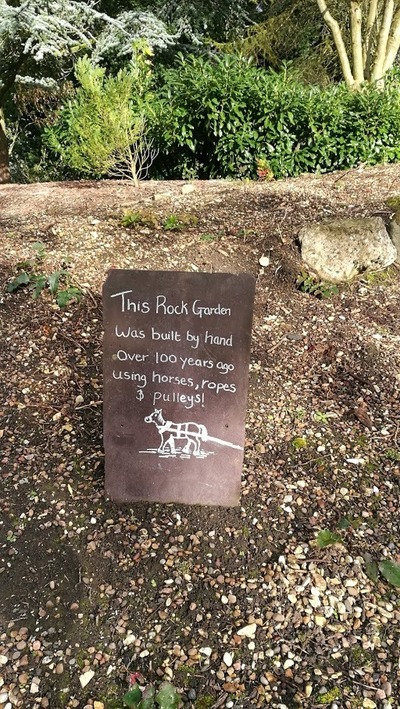 This Rock Garden
Was built by hand
Over 100 years ago
using horses, ropes
& pulleys!